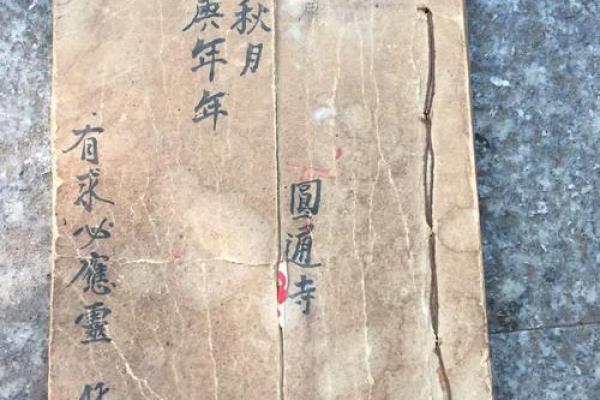 圓通寺
秋月
庚年年
有求必應靈